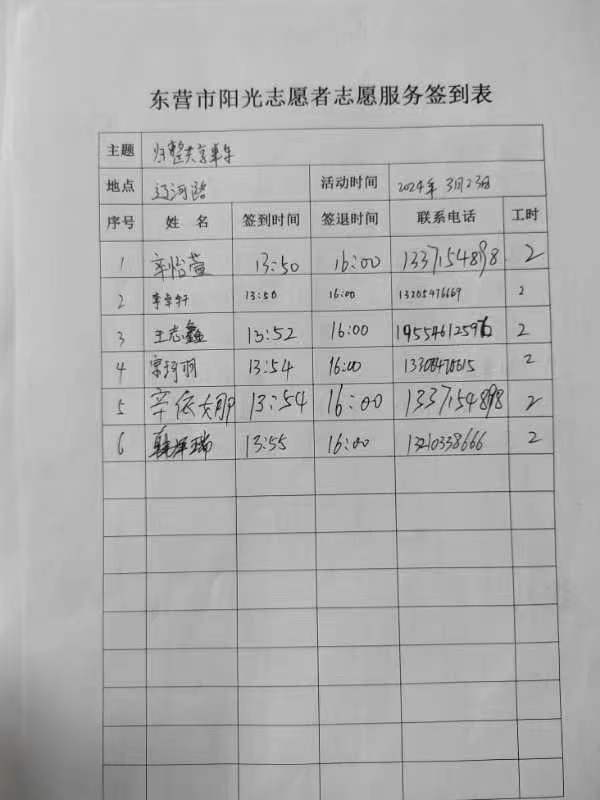 东营市阳光志愿者志愿服务签到表
主题 归整共享单车
地点 辽河路 活动时间 2024年 3月23日
序号 姓 名 签到时间 签退时间 联系电话 工时
1 辛怡萱 13:50 16:00 2
2 李宇轩 13:50 16:00 13205476669 2
3 王志鑫 13:52 16:00 2
4 13:54 16:00 2
5 辛依 13:54 16:00 2
6 瑞 13:55 16:00 13210338666 2